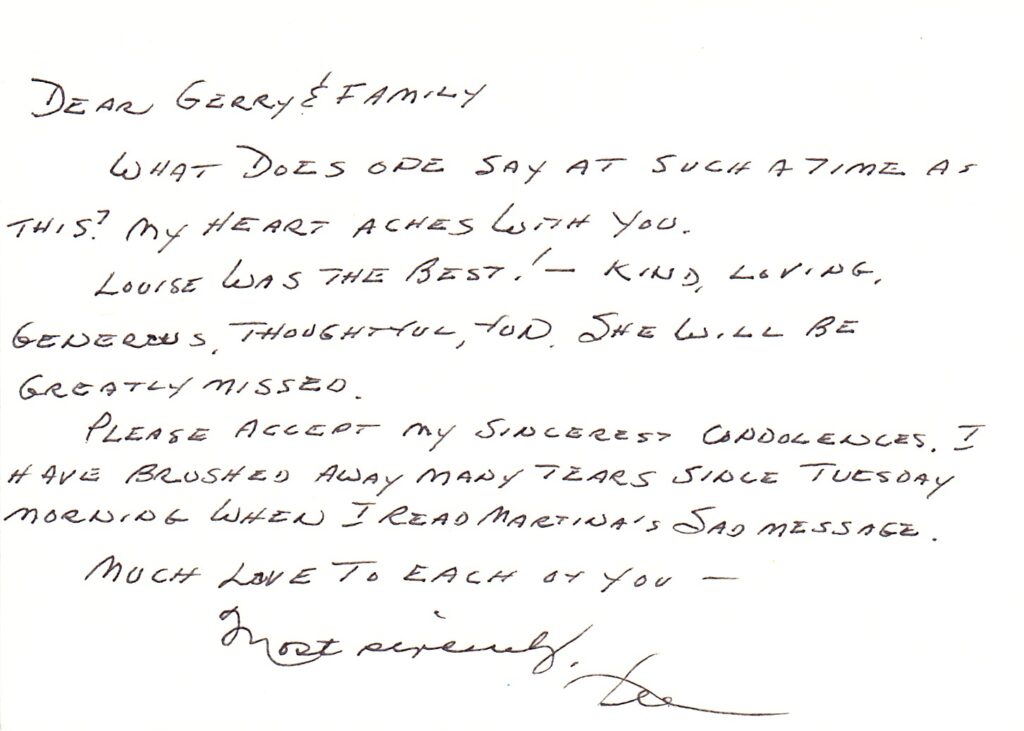 DEAR GERRY & FAMILY
WHAT DOES ONE SAY AT SUCH A TIME AS
THIS? MY HEART ACHES WITH YOU.
LOUISE WAS THE BEST! — KIND, LOVING,
GENEROUS, THOUGHTFUL, FUN. SHE WILL BE
GREATLY MISSED.
PLEASE ACCEPT MY SINCEREST CONDOLENCES. I
HAVE BRUSHED AWAY MANY TEARS SINCE TUESDAY
MORNING WHEN I READ MARTINA'S SAD MESSAGE.
MUCH LOVE TO EACH OF YOU —
Most sincerely,
Lee